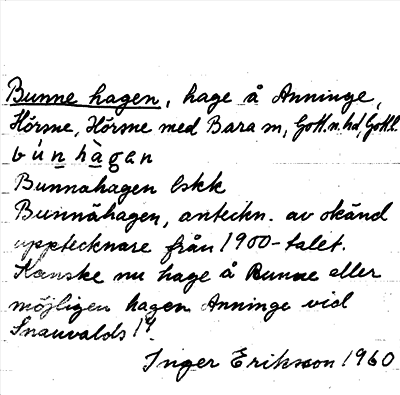 Bunne hagen, hage å Anninge,
Hörsne, Hörsne med Bara sn, Gotl.n.hd, Gotl.l.
bún hàgan
Bunnahagen lskk
Bunnähagen, anteckn. av okänd
upptecknare från 1900-talet.
Kanske nu hage å Bunne eller
möjligen hagen Anninge vid
Snauvalds!?
Inger Eriksson 1960